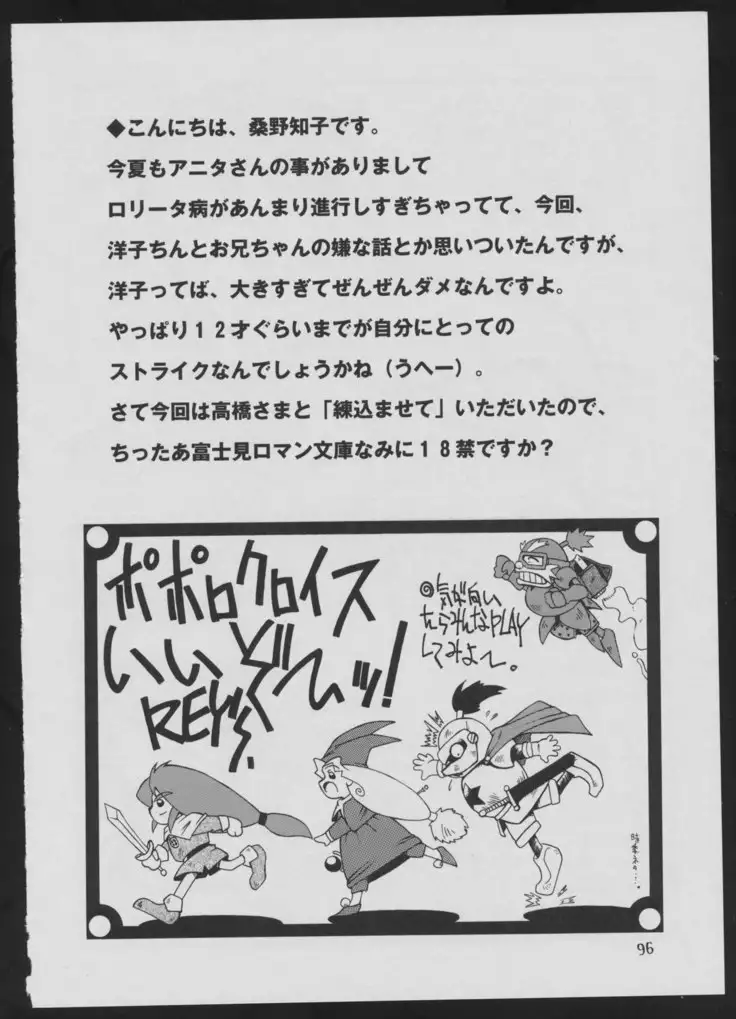 ◆こんにちは、桑野知子です。
今夏もアニタさんの事がありまして
ロリータ病があんまり進行しすぎちゃってて、今回、
洋子ちんとお兄ちゃんの嫌な話とか思いついたんですが、
洋子ってば、大きすぎてぜんぜんダメなんですよ。
やっぱり１２才ぐらいまでが自分にとっての
ストライクなんでしょうかね（うへー）。
さて今回は高橋さまと「練込ませて」いただいたので、
ちったあ富士見ロマン文庫なみに１８禁ですか？
ポポロクロイス
いいぞーッ!
気が向い
たらみんなPLAY
してみよ〜。
96